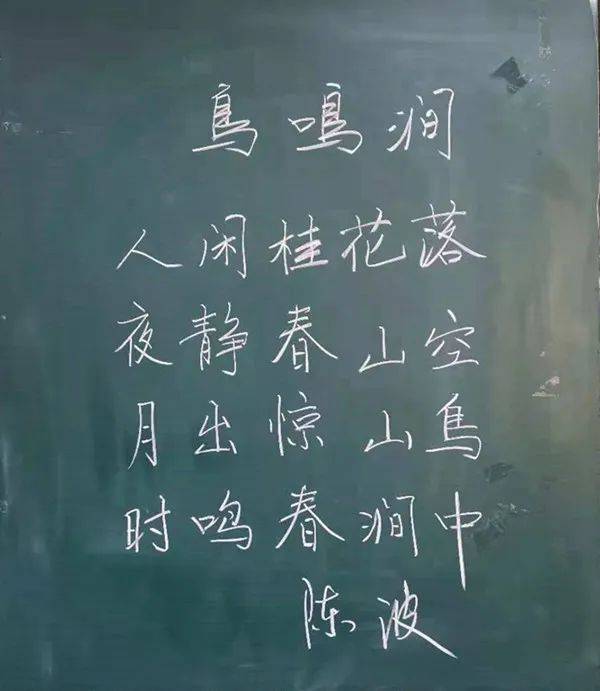 鳥鳴涧
人闲桂花落
夜静春山空
月出惊山鳥
时鸣春涧中
陈波